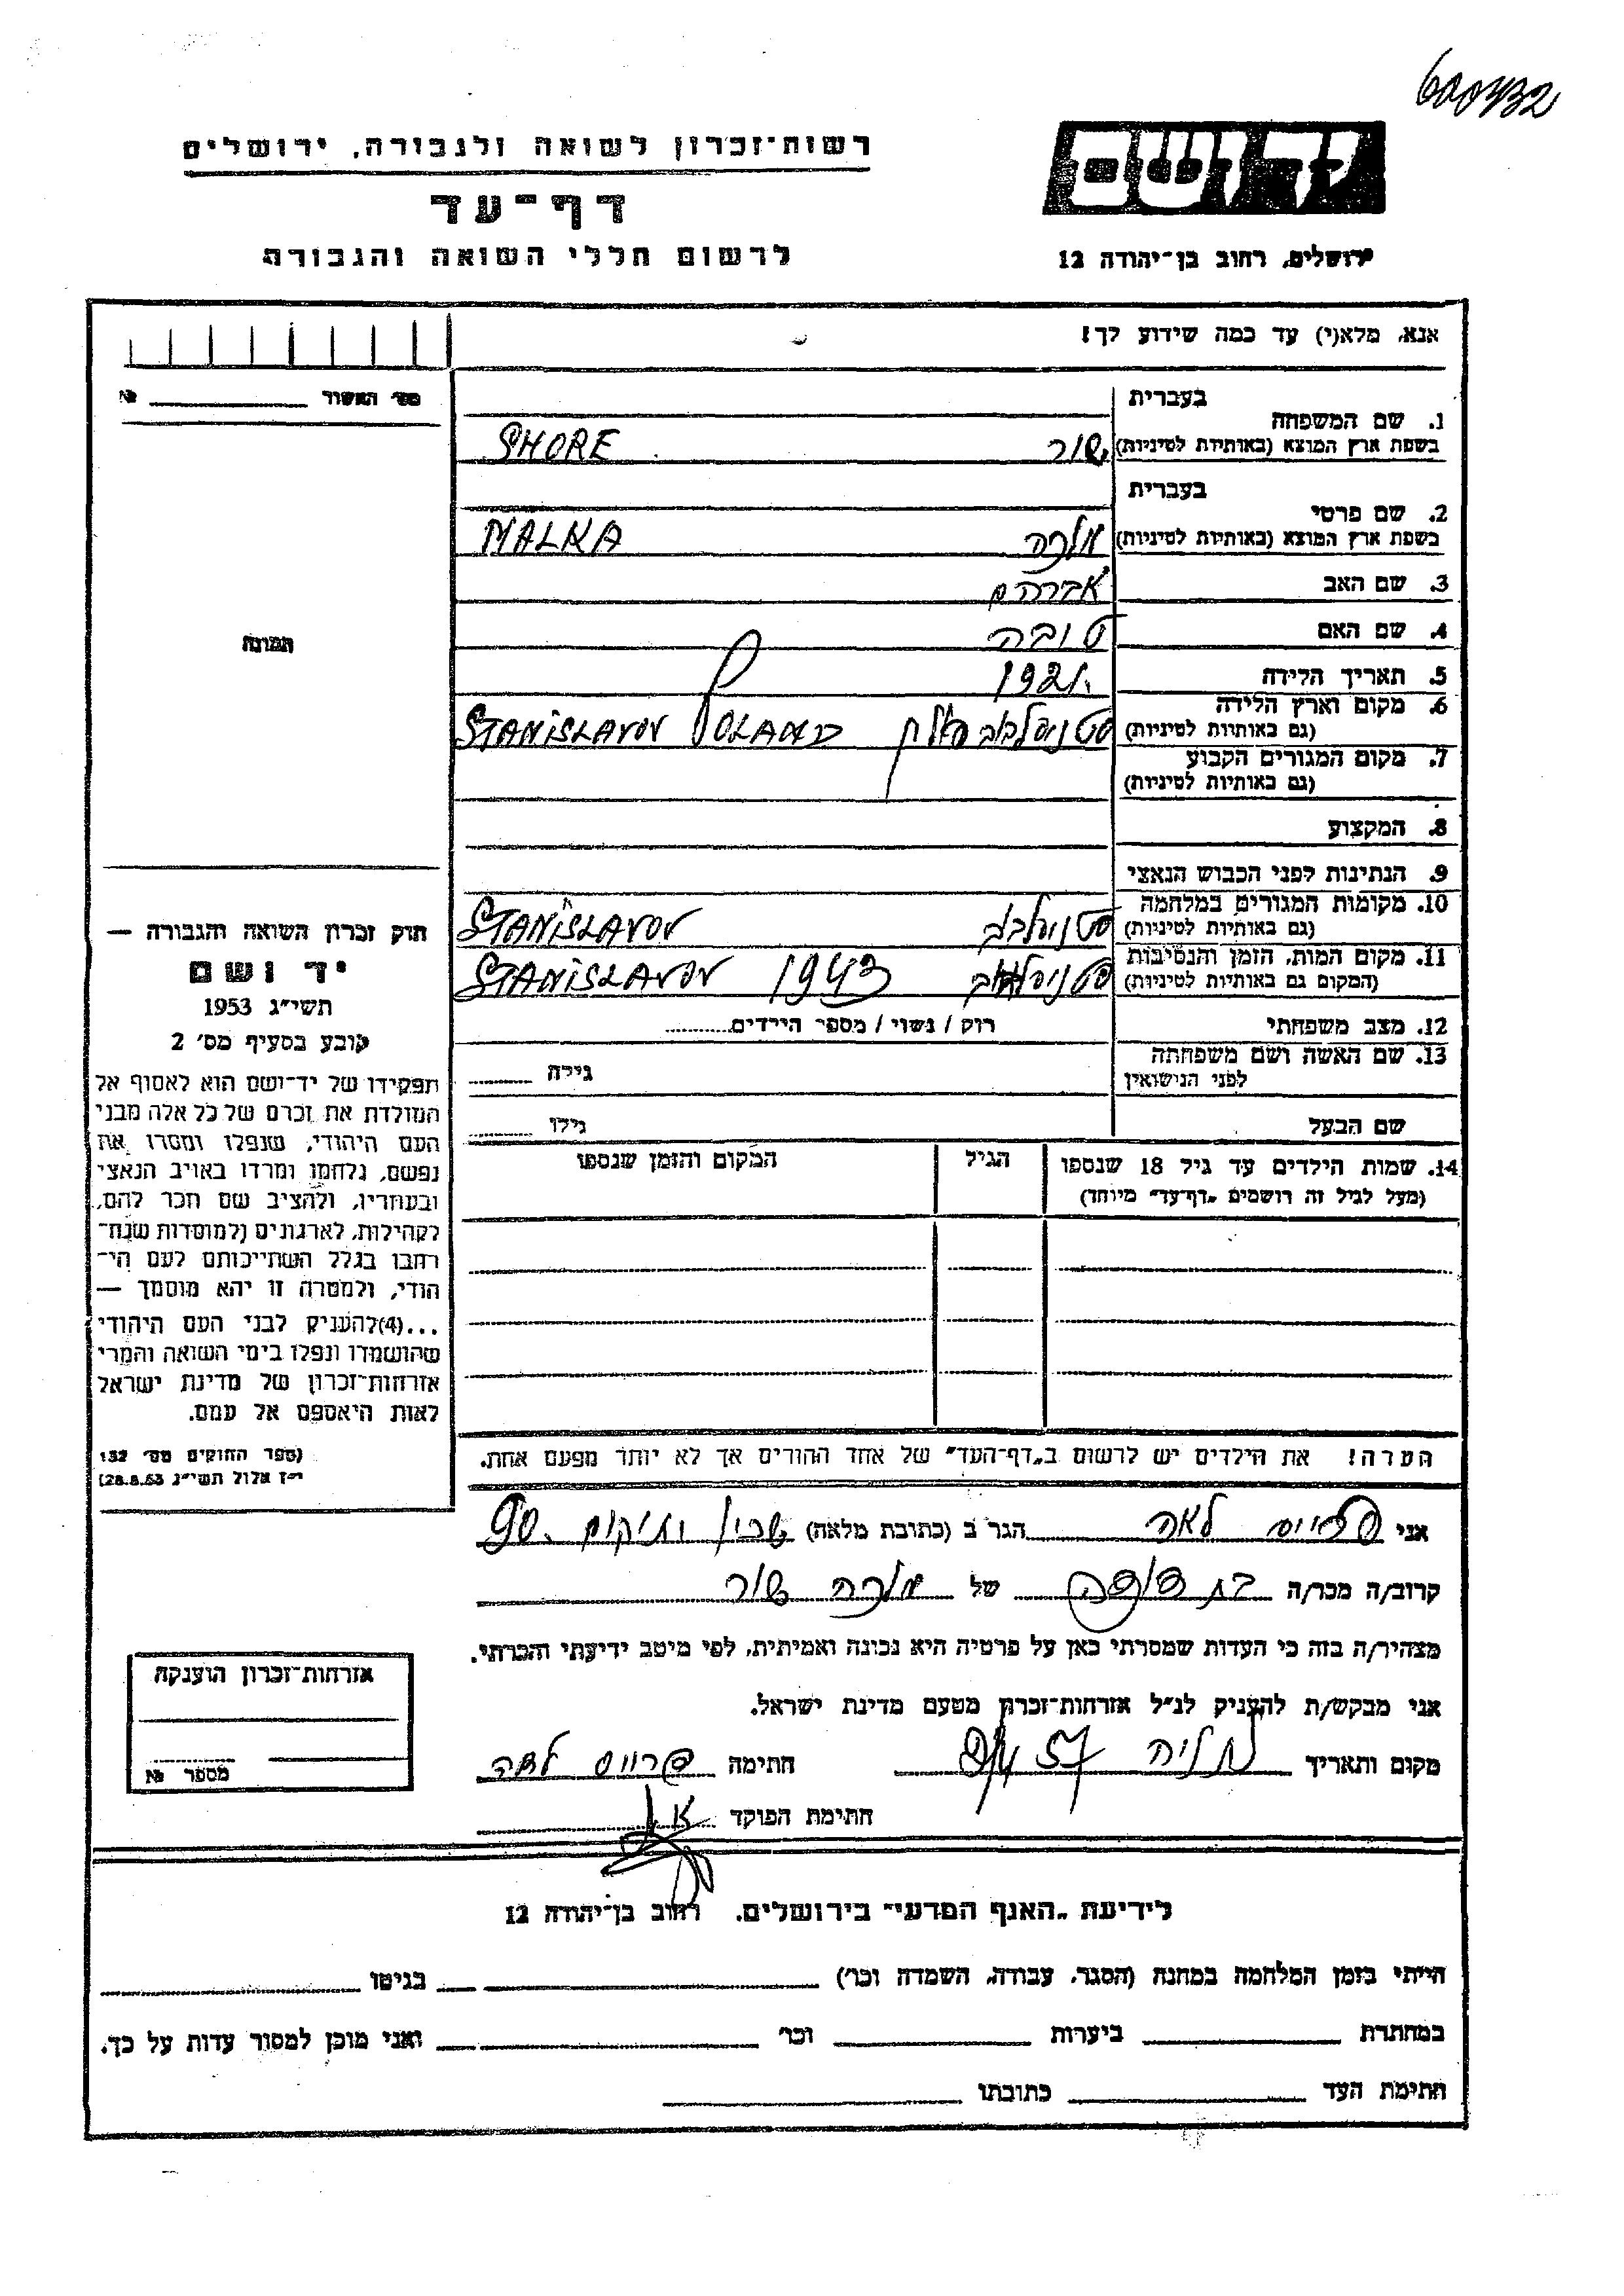 600732
רשות־זכרון לשואה ולגבורה, ירושלים
יד ושם
דף־עד
לרשום חללי השואה והגבורה
ירושלים, רחוב בן־יהודה 12
אנא, מלא(י) עד כמה שידוע לך!
מס׳ האשור №
1. שם המשפחה בעברית
בשפת ארץ המוצא (באותיות לטיניות) שור SHORE
2. שם פרטי בעברית
בשפת ארץ המוצא (באותיות לטיניות) מלכה MALKA
3. שם האב אברהם
4. שם האם טובה
5. תאריך הלידה 1921.
6. מקום וארץ הלידה
(גם באותיות לטיניות) סטניסלבוב פולין STANISLAVOV POLAND
7. מקום המגורים הקבוע
(גם באותיות לטיניות)
8. המקצוע
9. הנתינות לפני הכבוש הנאצי
10. מקומות המגורים במלחמה
(גם באותיות לטיניות) סטניסלבוב STANISLAVOV
11. מקום המות, הזמן והנסיבות
(המקום גם באותיות לטיניות) סטניסלבוב 1943 STANISLAVOV
12. מצב משפחתי רוק / נשוי / מספר הילדים
13. שם האשה ושם משפחתה
לפני הנישואין גילה
שם הבעל גילו
14. שמות הילדים עד גיל 18 שנספו הגיל המקום והזמן שנספו
(מעל לגיל זה רושמים „דף־עד״ מיוחד)
הערה! את הילדים יש לרשום ב„דף־העד״ של אחד ההורים אך לא יותר מפעם אחת.
תמונה
חוק זכרון השואה והגבורה —
יד ושם
תשי״ג 1953
קובע בסעיף מס׳ 2
תפקידו של יד־ושם הוא לאסוף אל
המולדת את זכרם של כל אלה מבני
העם היהודי, שנפלו ומסרו את
נפשם, נלחמו ומרדו באויב הנאצי
ובעוזריו, ולהציב שם וזכר להם,
לקהילות, לארגונים ולמוסדות שנח־
רבו בגלל השתייכותם לעם הי־
הודי, ולמטרה זו יהא מוסמך —
...(4)להעניק לבני העם היהודי
שהושמדו ונפלו בימי השואה והמרי
אזרחות־זכרון של מדינת ישראל
לאות היאספם אל עמם.
(ספר החוקים מס׳ 132
י״ז אלול תשי״ג 28.8.53)
אני לאה הגר ב (כתובת מלאה) שכון ותיקים
קרוב/ה מכר/ה בת דודה של מלכה שור
מצהיר/ה בזה כי העדות שמסרתי כאן על פרטיה היא נכונה ואמיתית, לפי מיטב ידיעתי והכרתי.
אני מבקש/ת להעניק לנ״ל אזרחות־זכרון מטעם מדינת ישראל.
מקום ותאריך חתימה לאה
חתימת הפוקד
אזרחות־זכרון הוענקה
מספר №
לידיעת „האגף המדעי״ בירושלים. רחוב בן־יהודה 12
הייתי בזמן המלחמה במחנה (הסגר, עבודה, השמדה וכו׳) בגיטו
במחתרת ביערות וכו׳ ואני מוכן למסור עדות על כך.
חתימת העד כתובתו